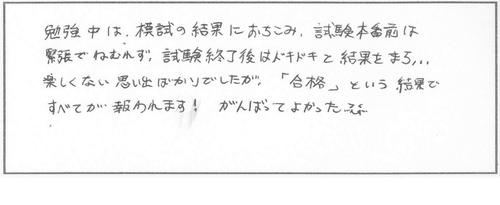 勉強中は、模試の結果におちこみ、試験本番前は
緊張でねむれず、試験終了後はドキドキと結果をまち、、、
楽しくない思い出ばかりでしたが、「合格」という結果で
すべてが報われます! がんばってよかった